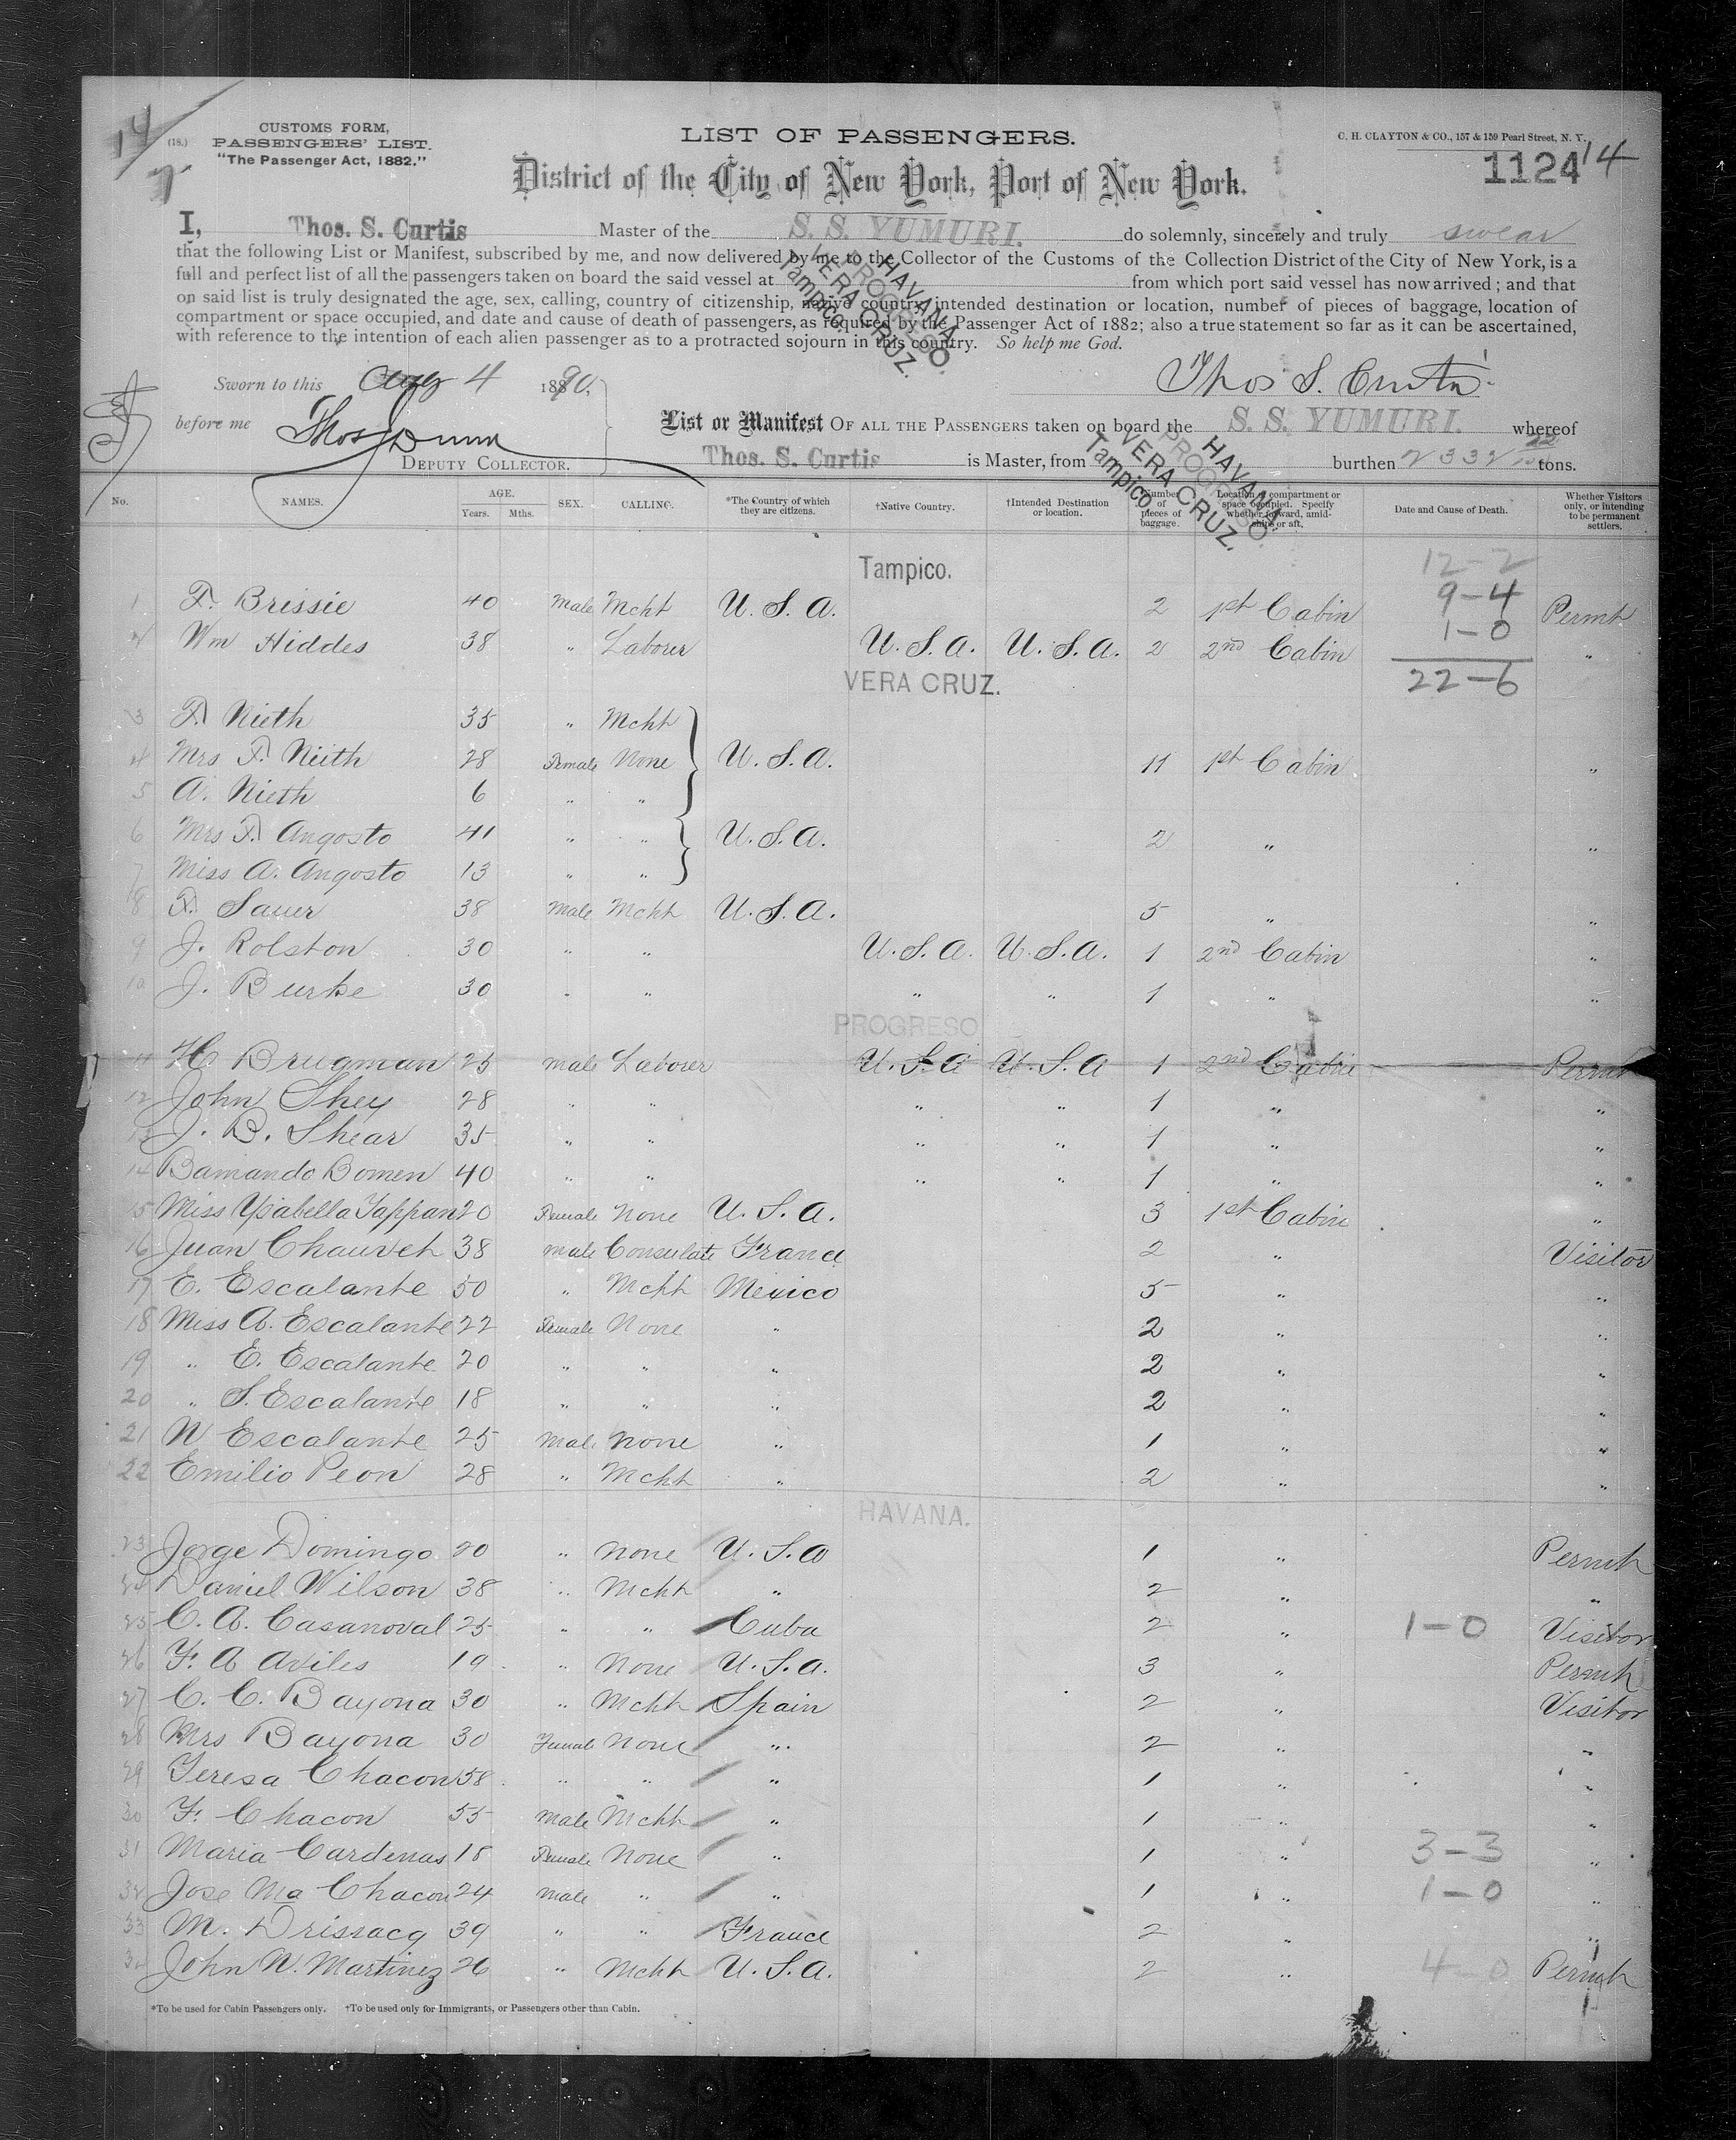 14
7
(18.)
CUSTOMS FORM,
PASSENGERS' LIST.
"The Passenger Act, 1882."
LIST OF PASSENGERS.
C. H. CLAYTON & CO., 157 & 159 Pearl Street, N. Y.
1124 14
District of the City of New York, Port of New York.
I, Thos. S. Curtis Master of the S. S. YUMURI. do solemnly, sincerely and truly swear
that the following List or Manifest, subscribed by me, and now delivered by me to the Collector of the Customs of the Collection District of the City of New York, is a
full and perfect list of all the passengers taken on board the said vessel at Tampico. VERA CRUZ. PROGRESO. HAVANA. from which port said vessel has now arrived; and that
on said list is truly designated the age, sex, calling, country of citizenship, native country, intended destination or location, number of pieces of baggage, location of
compartment or space occupied, and date and cause of death of passengers, as required by the Passenger Act of 1882; also a true statement so far as it can be ascertained,
with reference to the intention of each alien passenger as to a protracted sojourn in this country. So help me God.
Sworn to this Aug 4 1890,
Thos S. Curtis
before me Thos Dunn
DEPUTY COLLECTOR.
List or Manifest OF ALL THE PASSENGERS taken on board the S. S. YUMURI. whereof
Thos. S. Curtis is Master, from Tampico VERA CRUZ. PROGRESO. HAVANA. burthen 2332 tons.
No. NAMES. AGE. Years. Mths. SEX. CALLING. *The Country of which they are citizens. †Native Country. †Intended Destination or location. Number of pieces of baggage. Location of compartment or space occupied. Specify whether forward, amidships or aft. Date and Cause of Death. Whether Visitors only, or intending to be permanent settlers.
Tampico. 12-2
1 F. Brissie 40 Male Mcht U.S.A. 2 1st Cabin 9-4 Permt
2 Wm Hiddes 38 " Laborer U.S.A. U.S.A. 2 2nd Cabin 1-0 "
VERA CRUZ. 22-6
3 F. Nieth 35 " Mcht
4 Mrs F. Nieth 28 Female None U.S.A. 11 1st Cabin "
5 A. Nieth 6 " "
6 Mrs F. Angosto 41 " " U.S.A. 2 " "
7 Miss A. Angosto 13 " "
8 F. Sauer 38 Male Mcht U.S.A. 5 " "
9 J. Rolston 30 " " U.S.A. U.S.A. 1 2nd Cabin "
10 J. Burke 30 " " " " 1 " "
PROGRESO
11 H. Brugman 25 Male Laborer U.S.A U.S.A 1 2nd Cabin Permt
12 John Shey 28 " " " " 1 " "
13 J. B. Shear 35 " " " " 1 " "
14 Bamando Bomen 40 " " " " 1 " "
15 Miss Ysabella Tappan 20 Female None U.S.A. 3 1st Cabin "
16 Juan Chauvet 38 Male Consulate France 2 " Visitor
17 E. Escalante 50 " Mcht Mexico 5 " "
18 Miss A. Escalante 22 Female None " 2 " "
19 " E. Escalante 20 " " " 2 " "
20 " S. Escalante 18 " " " 2 " "
21 N Escalante 25 Male None " 1 " "
22 Emilio Peon 28 " Mcht " 2 " "
HAVANA.
23 Jorge Domingo. 20 " None U.S.A 1 " Permt
24 Daniel Wilson 38 " Mcht " 2 " "
25 C. A. Casanoval 25 " " Cuba 2 " 1-0 Visitor
26 F. A Aviles 19 " None U.S.A. 3 " Permt
27 C. C. Bayona 30 " Mcht Spain 2 " Visitor
28 Mrs Bayona 30 Female None " 2 " "
29 Teresa Chacon 58 " " " 1 " "
30 F. Chacon 55 Male Mcht " 1 " "
31 Maria Cardenas 18 Female None " 1 " 3-3 "
32 Jose Ma Chacon 24 Male " " 1 " 1-0 "
33 M. Drissacq 39 " " France 2 " "
34 John N. Martinez 26 " Mcht U.S.A. 2 " 4-0 Permt
*To be used for Cabin Passengers only. †To be used only for Immigrants, or Passengers other than Cabin.